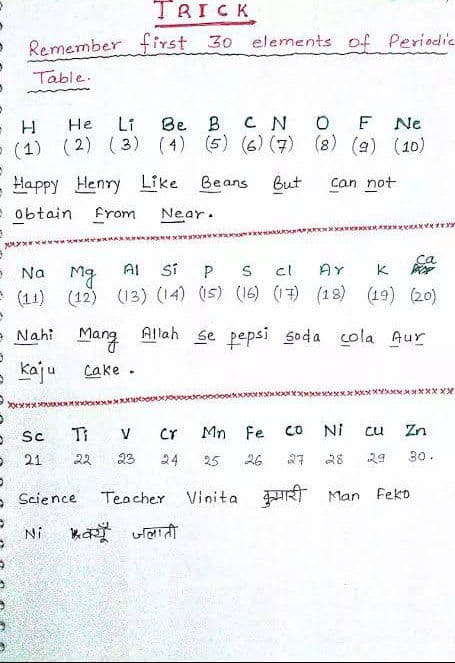 TRICK
Remember first 30 elements of Periodic
Table.
H He Li Be B C N O F Ne
(1) (2) (3) (4) (5) (6) (7) (8) (9) (10)
Happy Henry Like Beans But Can not
Obtain From Near.
Na Mg Al Si P S Cl Ar K Ca
(11) (12) (13) (14) (15) (16) (17) (18) (19) (20)
Nahi Mang Allah Se pepsi Soda cola Aur
Kaju Cake.
Sc Ti V Cr Mn Fe CO Ni Cu Zn
21 22 23 24 25 26 27 28 29 30.
Science Teacher Vinita कुमारी Man Feko
Ni क्यूँ जलाती